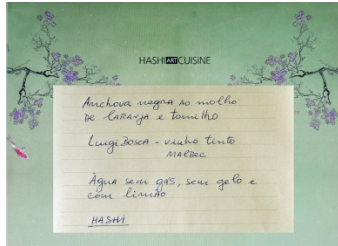 HASHI ART CUISINE
Anchova negra ao molho
de laranja e tomilho
Luigi Bosca - vinho tinto
MALBEC
Água sem gás, sem gelo e
com limão
HASHI